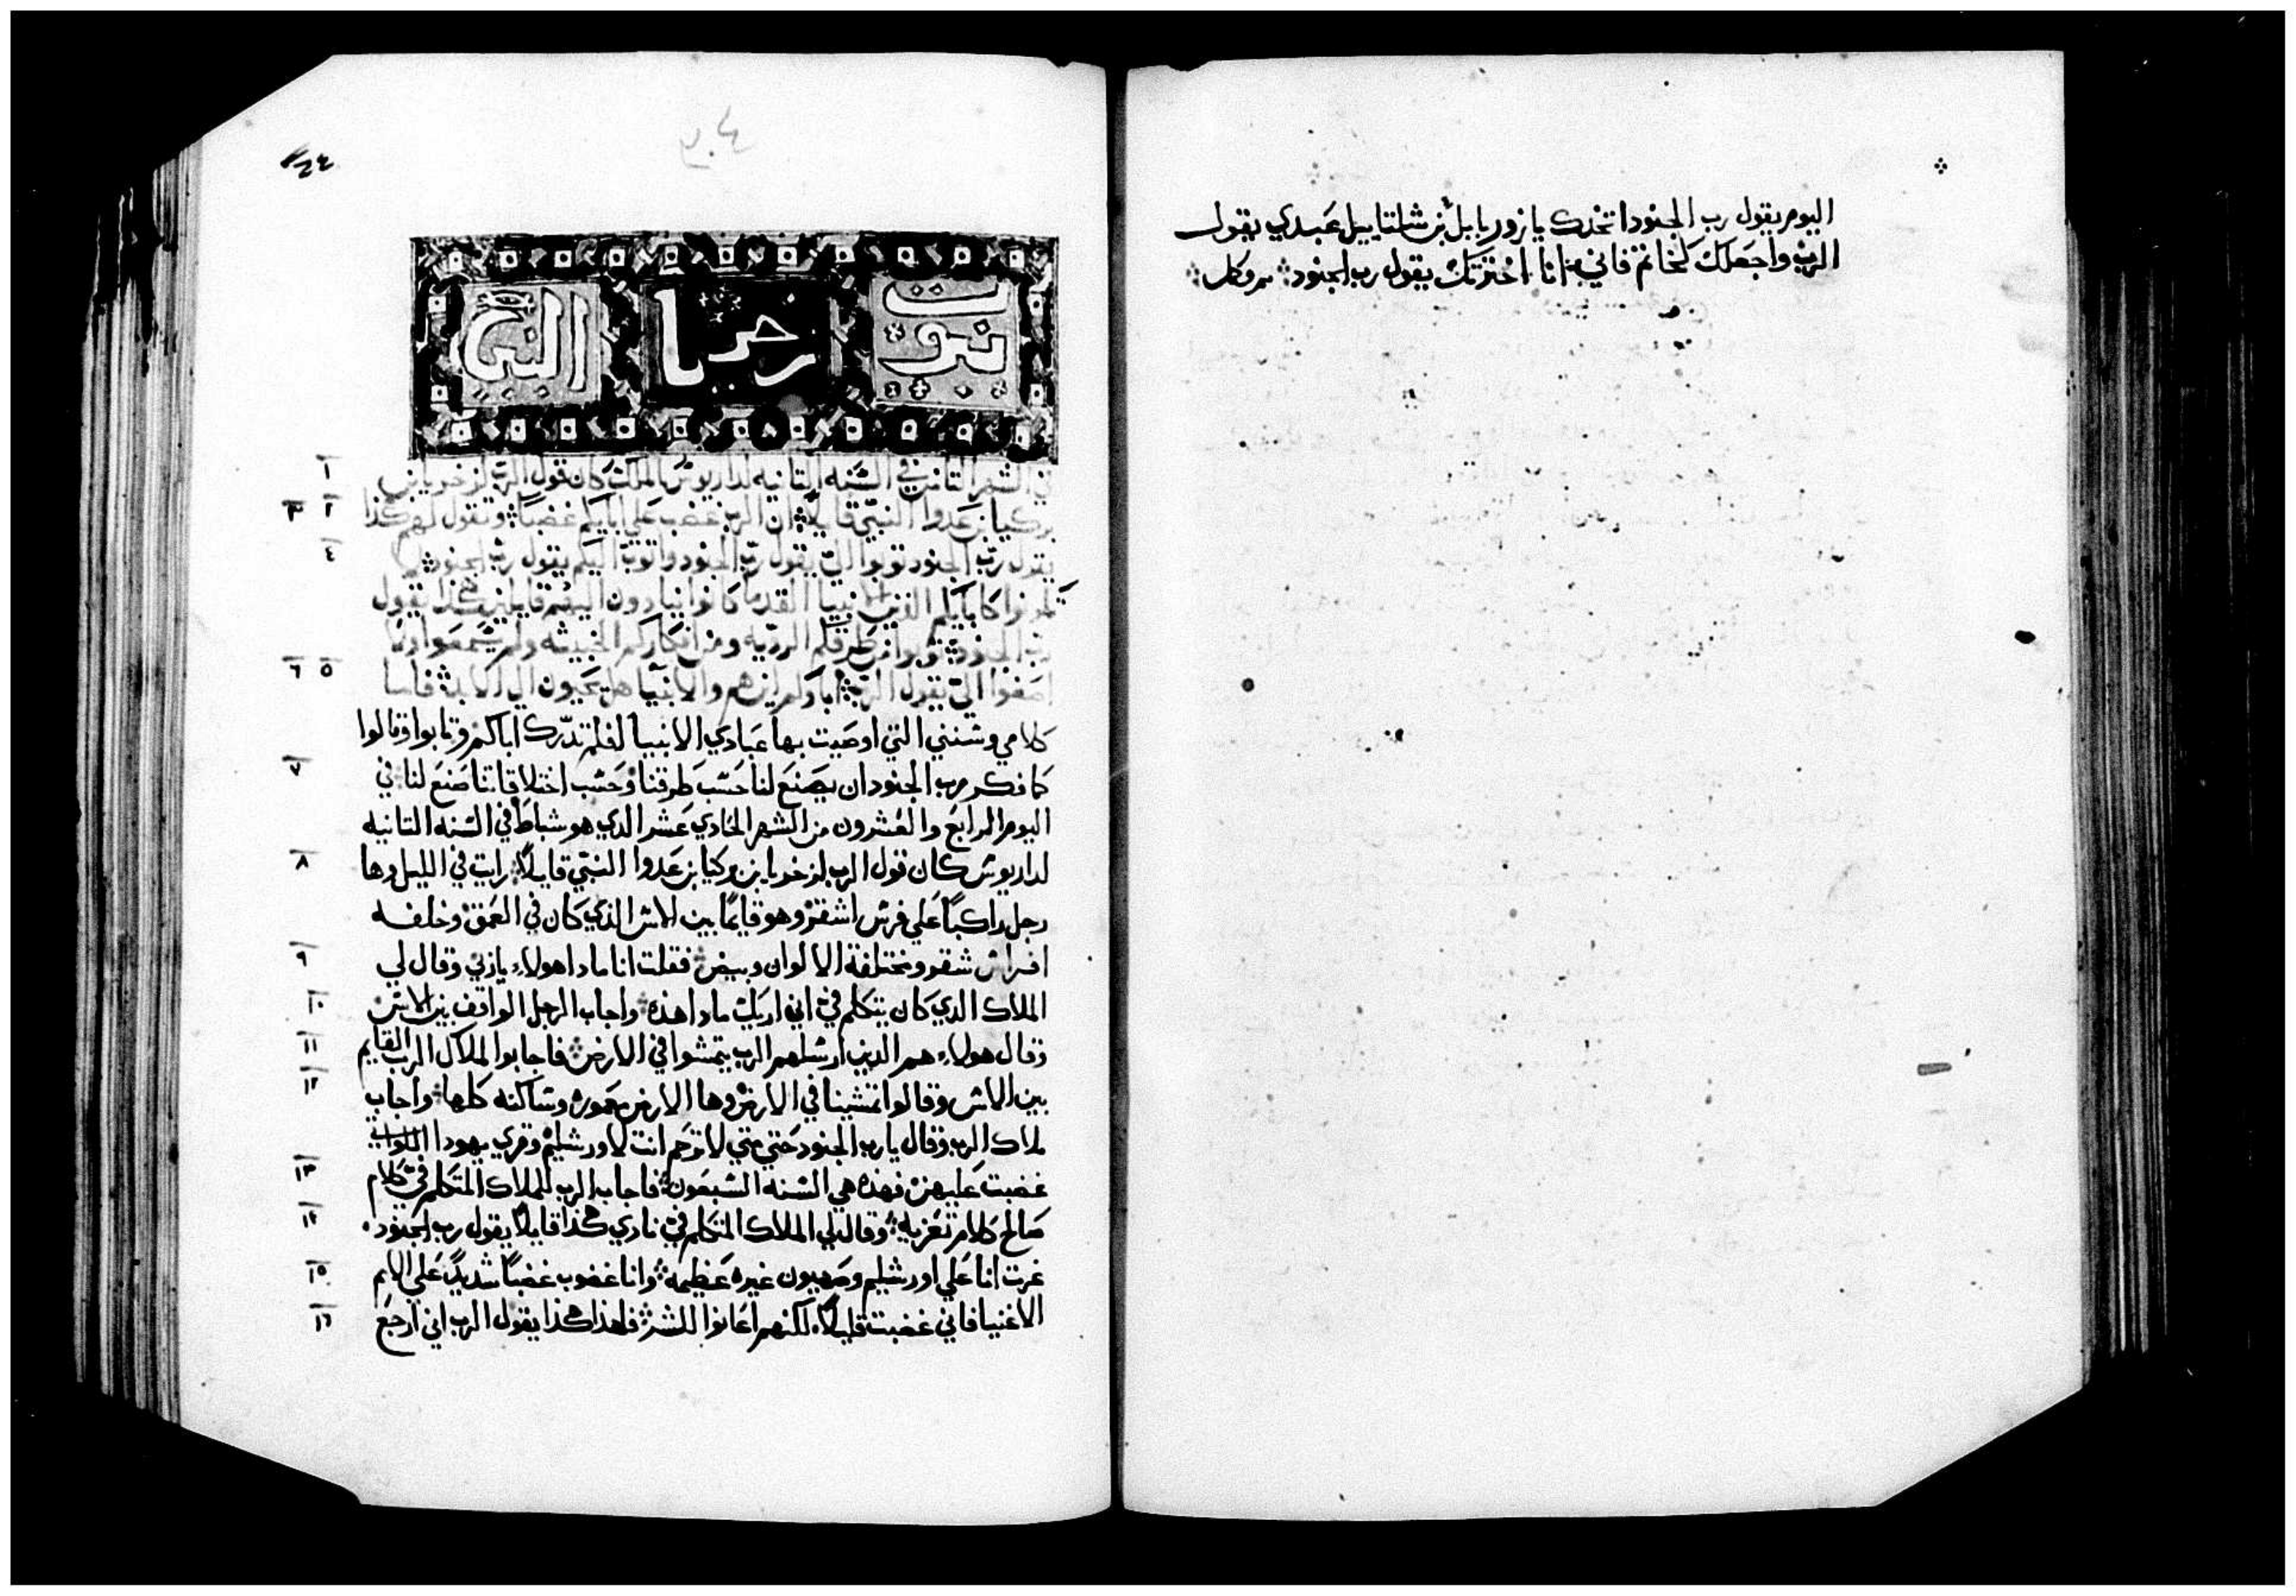 اليوم يقول رب الجنود اتخدك يا زوربابل بن شلتاييل عبدي يقول
الرب واجعلك كخاتم فاني انا اخترتك يقول رب الجنود
٣٠٤
نبوت زخريا النبي
١ في الشهر التامن في السنه التانيه لداريوش الملك كان قول الرب لزخريا بن
٢ ٣ بركيا بن عدوا النبي قايلاً ان الرب غضب علي ابايكم غضباً وتقول لهم هكذا
٤ يقول رب الجنود توبوا اليّ يقول رب الجنود واتوب اليكم يقول رب الجنود لا
تكونوا كابايكم الذين الانبيا القدما كانوا ينادون اليهم قايلين هكذا يقول
رب الجنود توبوا من طرقكم الرديه ومن افكاركم الخبيثه ولم يسمعوا ولا
٥ ٦ اصغوا اليّ يقول الرب اباوكم اين هم والانبيا هل يحيون الي الابد فاما
كلامي وسنني التي اوصيت بها عبادي الانبيا افلم تدّرك اباكم وتابوا وقالوا
٧ كما فكر رب الجنود ان يصنع لنا حسب طرقنا وحسب اختلاقاتنا صنع لنا في
اليوم الرابع والعشرون من الشهر الحادي عشر الدي هو شباط في السنه التانيه
٨ لداريوش كان قول الرب لزخريا بن بركيا بن عدوا النبي قايلاً رايت في الليل وها
رجل راكباً علي فرس اشقر وهو قايمًا بين الاس الذي كان في العمق وخلفه
٩ افراس شقر ومختلفة الالوان وبيض فقلت انا مادا هولاء يا ربي وقال لي
١٠ الملاك الدي كان يتكلم فيّ اني اريك مادا هذه واجاب الرجل الواقف بين الاس
١١ وقال هولاء هم الدين ارسلهم الرب يتمشوا في الارض فاجابوا لملاك الرب القايم
١٢ بين الاس وقالوا تمشينا في الارض وها الارض معموره وساكنه كلها واجاب
ملاك الرب وقال يا رب الجنود حتي متي لا ترحم انت لاورشليم وقري يهودا اللواتي
١٣ غضبت عليهن فهذه هي السنه السبعون فاجاب الرب للملاك المتكلم فيّ كلام
١٤ صالح كلام تعزيه وقال لي الملاك المتكلم فيّ نادي هكذا قايلاً يقول رب الجنود
١٥ غرت انا علي اورشليم وصهيون غيره عظيمه وانا غضوب غضباً شديدً علي الامم
١٦ الاغنيا فاني غضبت قليلاً لكنهم اعانوا للشر فلهذا هكذا يقول الرب اني ارجع